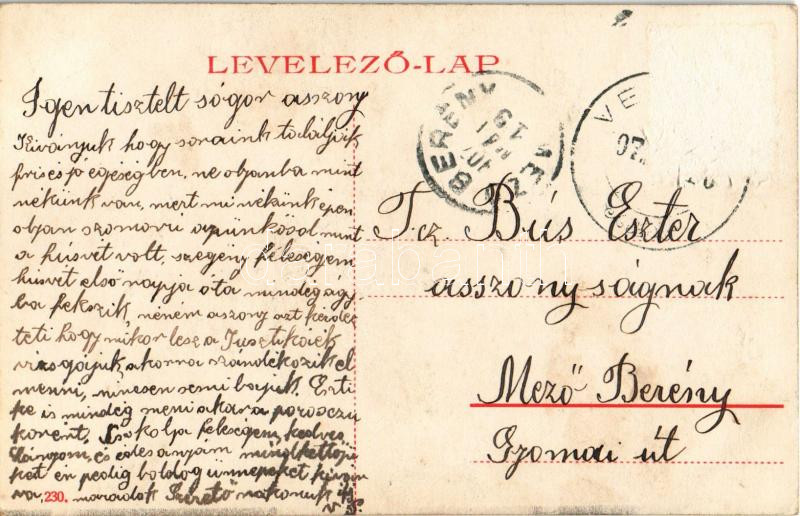 LEVELEZŐ-LAP
Igen tisztelt sógor asszony
Kiványuk hogy soraink találják
friss jó egéségben, ne olyanba mint
nékünk van, mert minékünk épen
olyan szomorú a pünkösd mint
a húsvét volt, szegény feleségem
húsvét első napja óta mindég ágy
ba fekszik, néném aszony azt kérdez
teti hogy mikor lesz a Jusztikáék
vizsgájuk, akorra szándékozik el
menni, nincsen semi bajuk. Eszti
ke is mindég meni akar a
korént. Csokolja feleségem, kedves
és édes anyám mindkettőjü
ket én pedig boldog ünnepeket kíván
va, maradok Szerető rokonuk
230.
T. cz. Bús Eszter
asszonyságnak
Mező Berény
Gyomai út
MEZŐ BERÉNY
907
VE